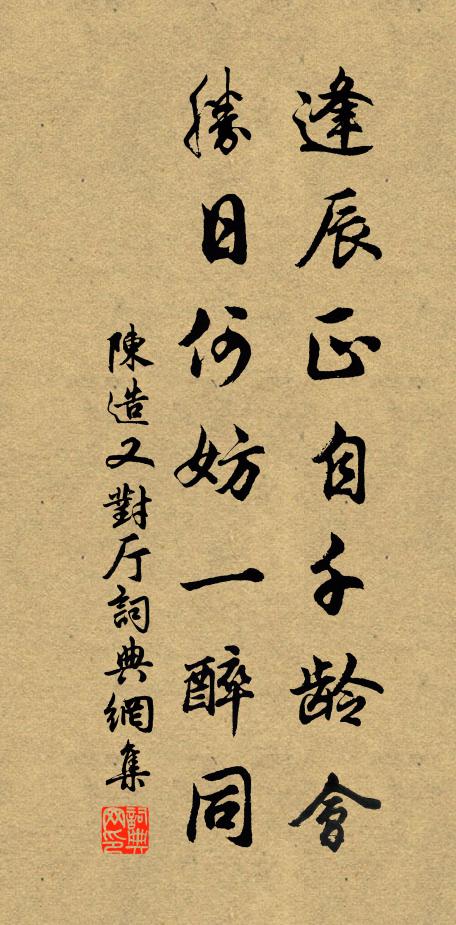 逢辰正自千龄會
勝日何妨一醉同
陳造又對厅詞典網集
詞典网印